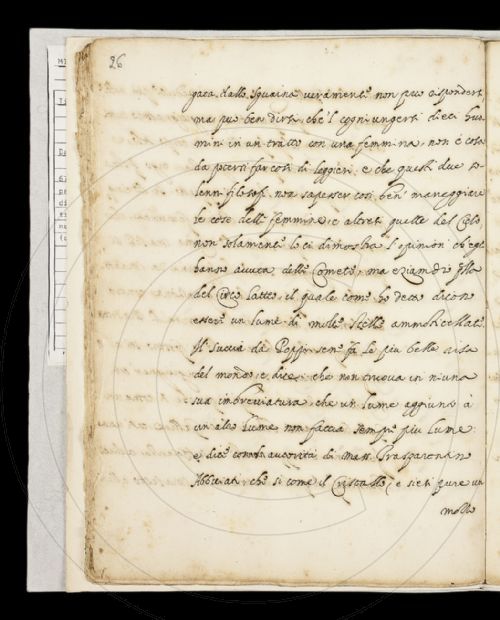 26
gata dallo Squaina veramente non puo rispondersi
ma puo ben dirsi, che 'l cogniungersi dieci huo
mini in un tratto con una femmina, non è cosa
da potersi far così di leggieri e che questi due so
lenni filosofi non sapesser così ben' maneggiare
le cose delle femmine, e altresì quelle del Cielo,
non solamente lo ci dimostra l'opinion' ch'egli
hanno avuta delle Comete, ma eziamdio
del Circo latteo, il quale come ho detto dicon
essere un lume di molte stelle
Il Succia da Poppi se ne fa le piu belle risa
del mondo, e dice, che non truova in niuna
sua imbreviatura, che un lume aggiunto à
un alo lume non faccia sempre piu lume:
e dice con autorità di Mass.
che si come il Cristallo, e sien pure un
mollo